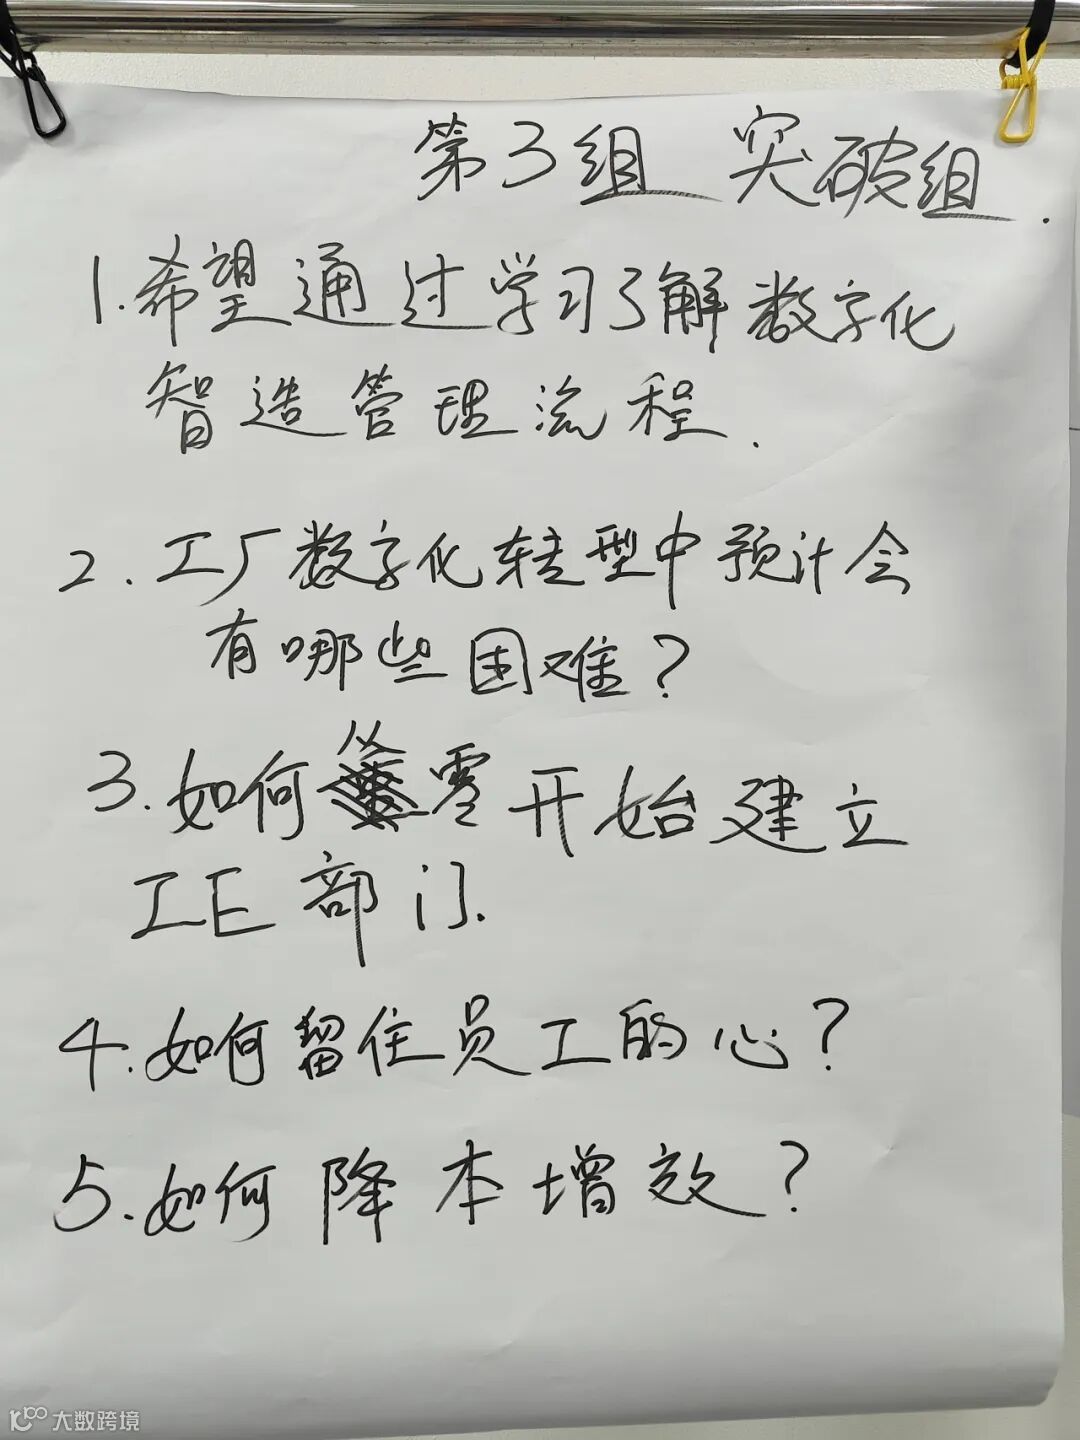 第3组 突破组.
1.希望通过学习了解数字化
智造管理流程.
2.工厂数字化转型中预计会
有哪些困难?
3.如何从零开始建立
IE部门.
4.如何留住员工的心?
5.如何降本增效?
大数跨境